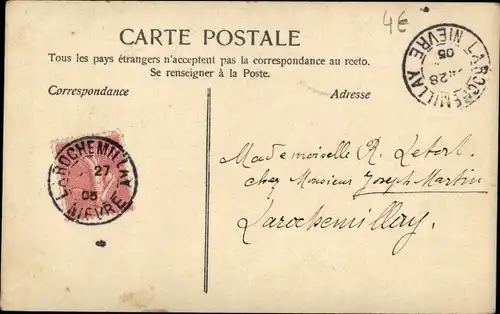 4€
CARTE POSTALE
Tous les pays étrangers n'acceptent pas la correspondance au recto.
Se renseigner à la Poste.
Correspondance
Adresse
LAROCHEMILLAY
28
05
NIÈVRE
LAROCHEMILLAY
27
05
NIÈVRE
Mademoiselle R.
chez Monsieur Joseph Martin
Larochemillay.